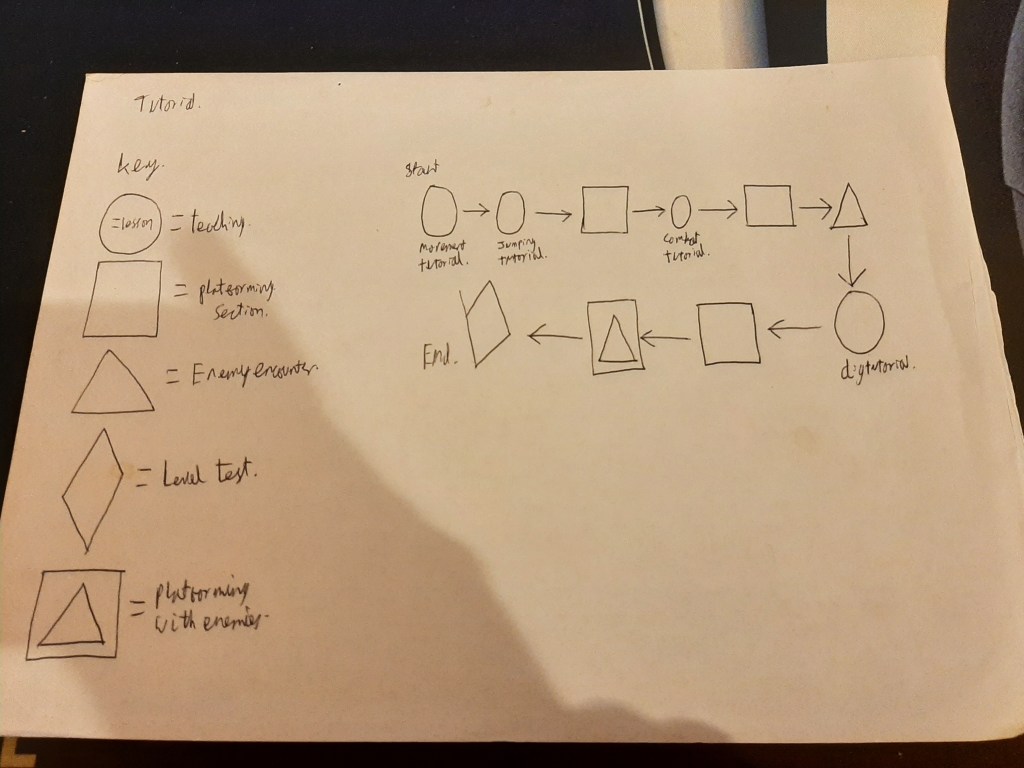 Tutorial.
key.
=lesson
= teaching.
= platforming
section.
= Enemy encounter.
= Level test.
= platforming
with enemies.
start
Movement
tutorial.
Jumping
tutorial.
Combat
tutorial.
dig tutorial.
End.